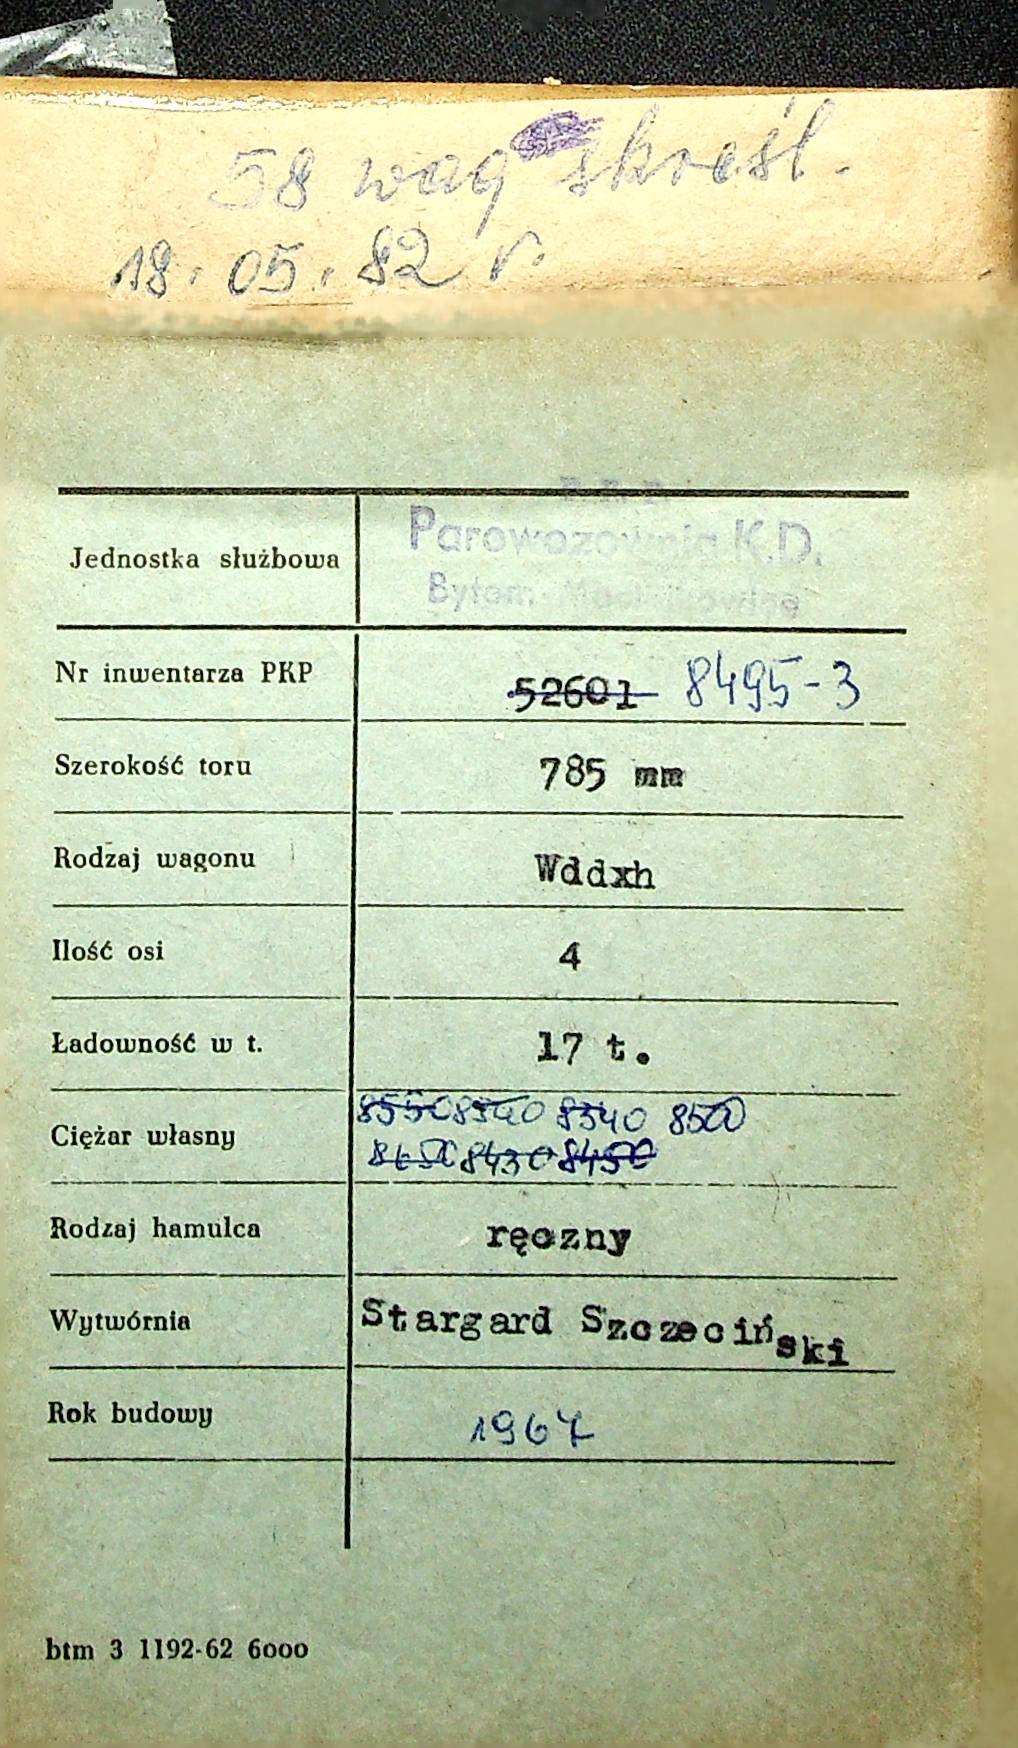 58 wag skreśl.
18.05.82 r.
P.K.P.
Jednostka służbowa Parowozownia K.D.
Bytom
Nr inwentarza PKP 52601 8495-3
Szerokość toru 785 mm
Rodzaj wagonu Wddxh
Ilość osi 4
Ładowność w t. 17 t.
8550 8540 8340 8500
Ciężar własny
8430 8450
Rodzaj hamulca ręczny
Wytwórnia Stargard Szczeciński
Rok budowy 1967
btm 3 1192-62 6000